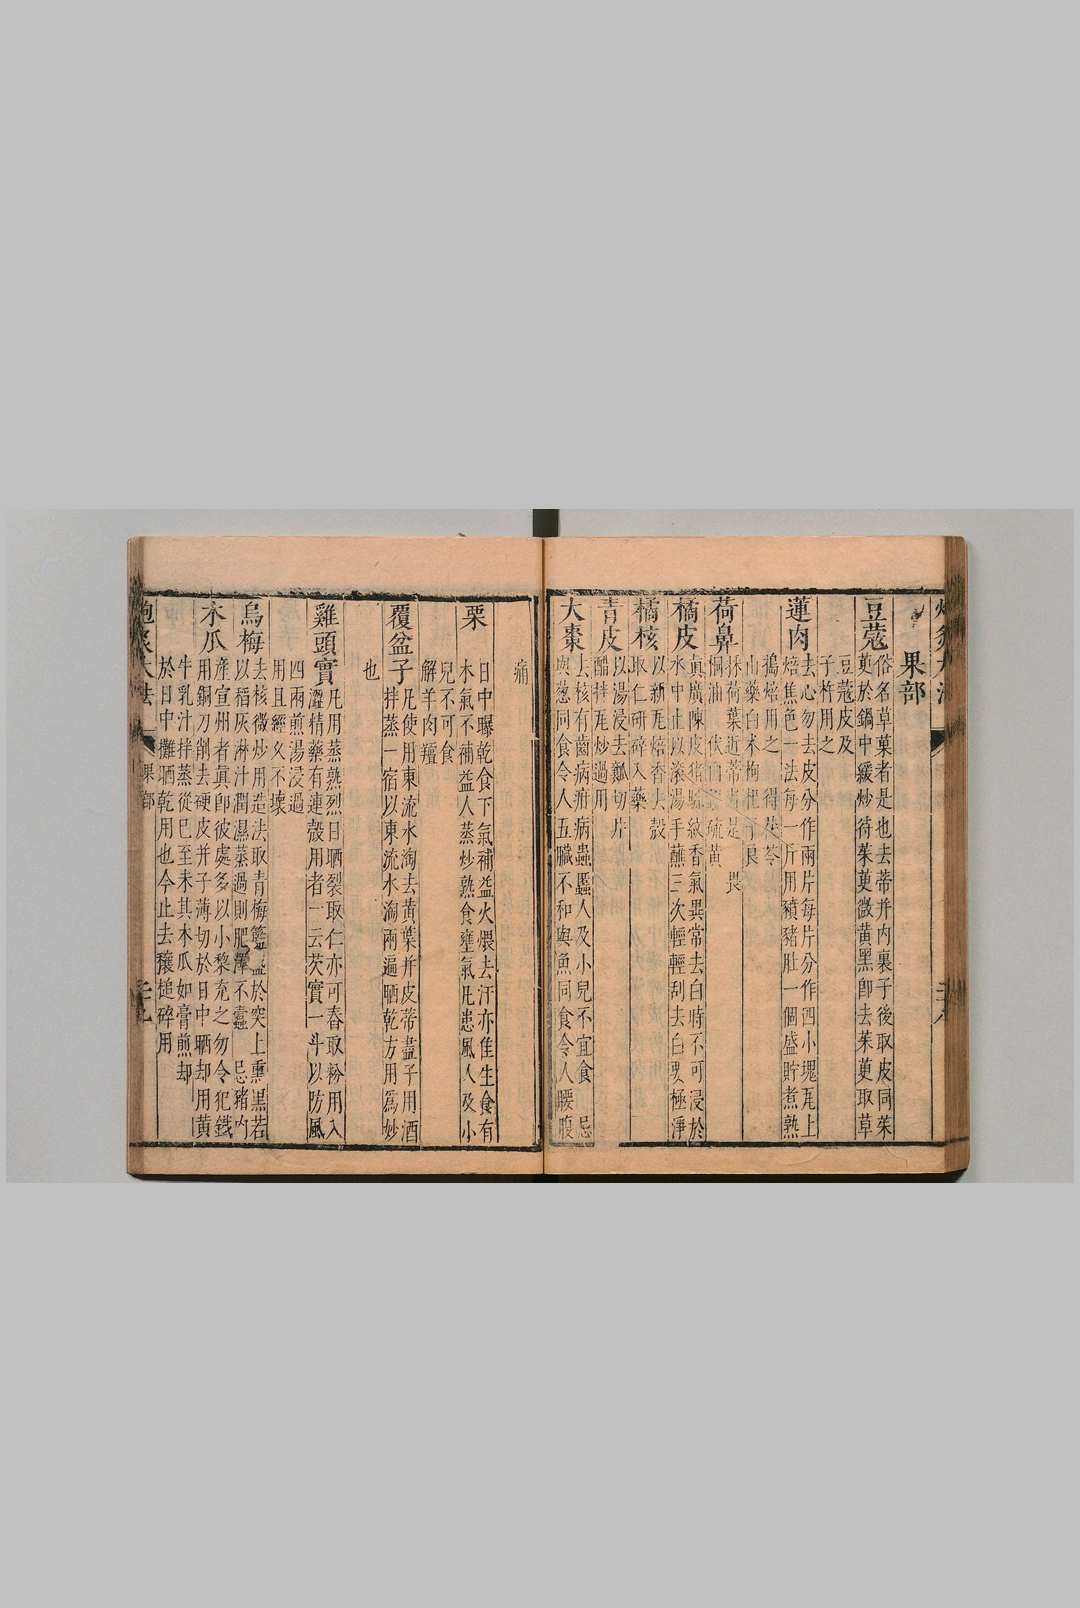 果部
豆蔻
俗名草菓者是也去蒂并内裏子後取皮同茱
萸於鍋中緩炒待茱萸微黄黑即去茱萸取草
豆蔻皮及
子杵用之
蓮肉
去心勿去皮分作兩片每片分作四小塊瓦上
焙焦色一法每一斤用豶豬肚一個盛貯煮熟
搗焙用之 得茯苓
山藥白术枸杞子良
荷鼻
採荷葉近蒂者是 畏
桐油 伏白 硫黄
橘皮
真廣陳皮猪鬃紋香氣異常去白時不可浸於
水中止以滚湯手蘸三次輕輕刮去白要極淨
橘核
以新瓦焙香去殼
取仁研碎入藥
青皮
以湯浸去瓤切片
醋拌瓦炒過用
大棗
去核有齒病疳病蟲䘌人及小兒不宜食 忌
與葱同食令人五臟不和與魚同食令人腰腹
痛
栗
日中曝乾食下氣補益火煨去汗亦佳生食有
木氣不補益人蒸炒熟食壅氣凡患風人及小
兒不可食
解羊肉羶
覆盆子
凡使用東流水淘去黄葉并皮蒂盡子用酒
拌蒸一宿以東流水淘兩遍晒乾方用爲妙
也
雞頭實
凡用蒸熟烈日晒裂取仁亦可舂取粉用入
澀精藥有連殼用者一云芡實一斗以防風
四兩煎湯浸過
用且經久不壞
烏梅
去核微炒用造法取青梅籃盛於突上熏黑若
以稻灰淋汁潤濕蒸過則肥澤不蠹 忌豬肉
木瓜
產宣州者真即彼處多以小梨充之勿令犯鐵
用銅刀削去硬皮并子薄切於日中晒却用黄
牛乳汁拌蒸從巳至未其木瓜如膏煎却
於日中攤晒乾用也今止去穰槌碎用
炮炙大法
果部